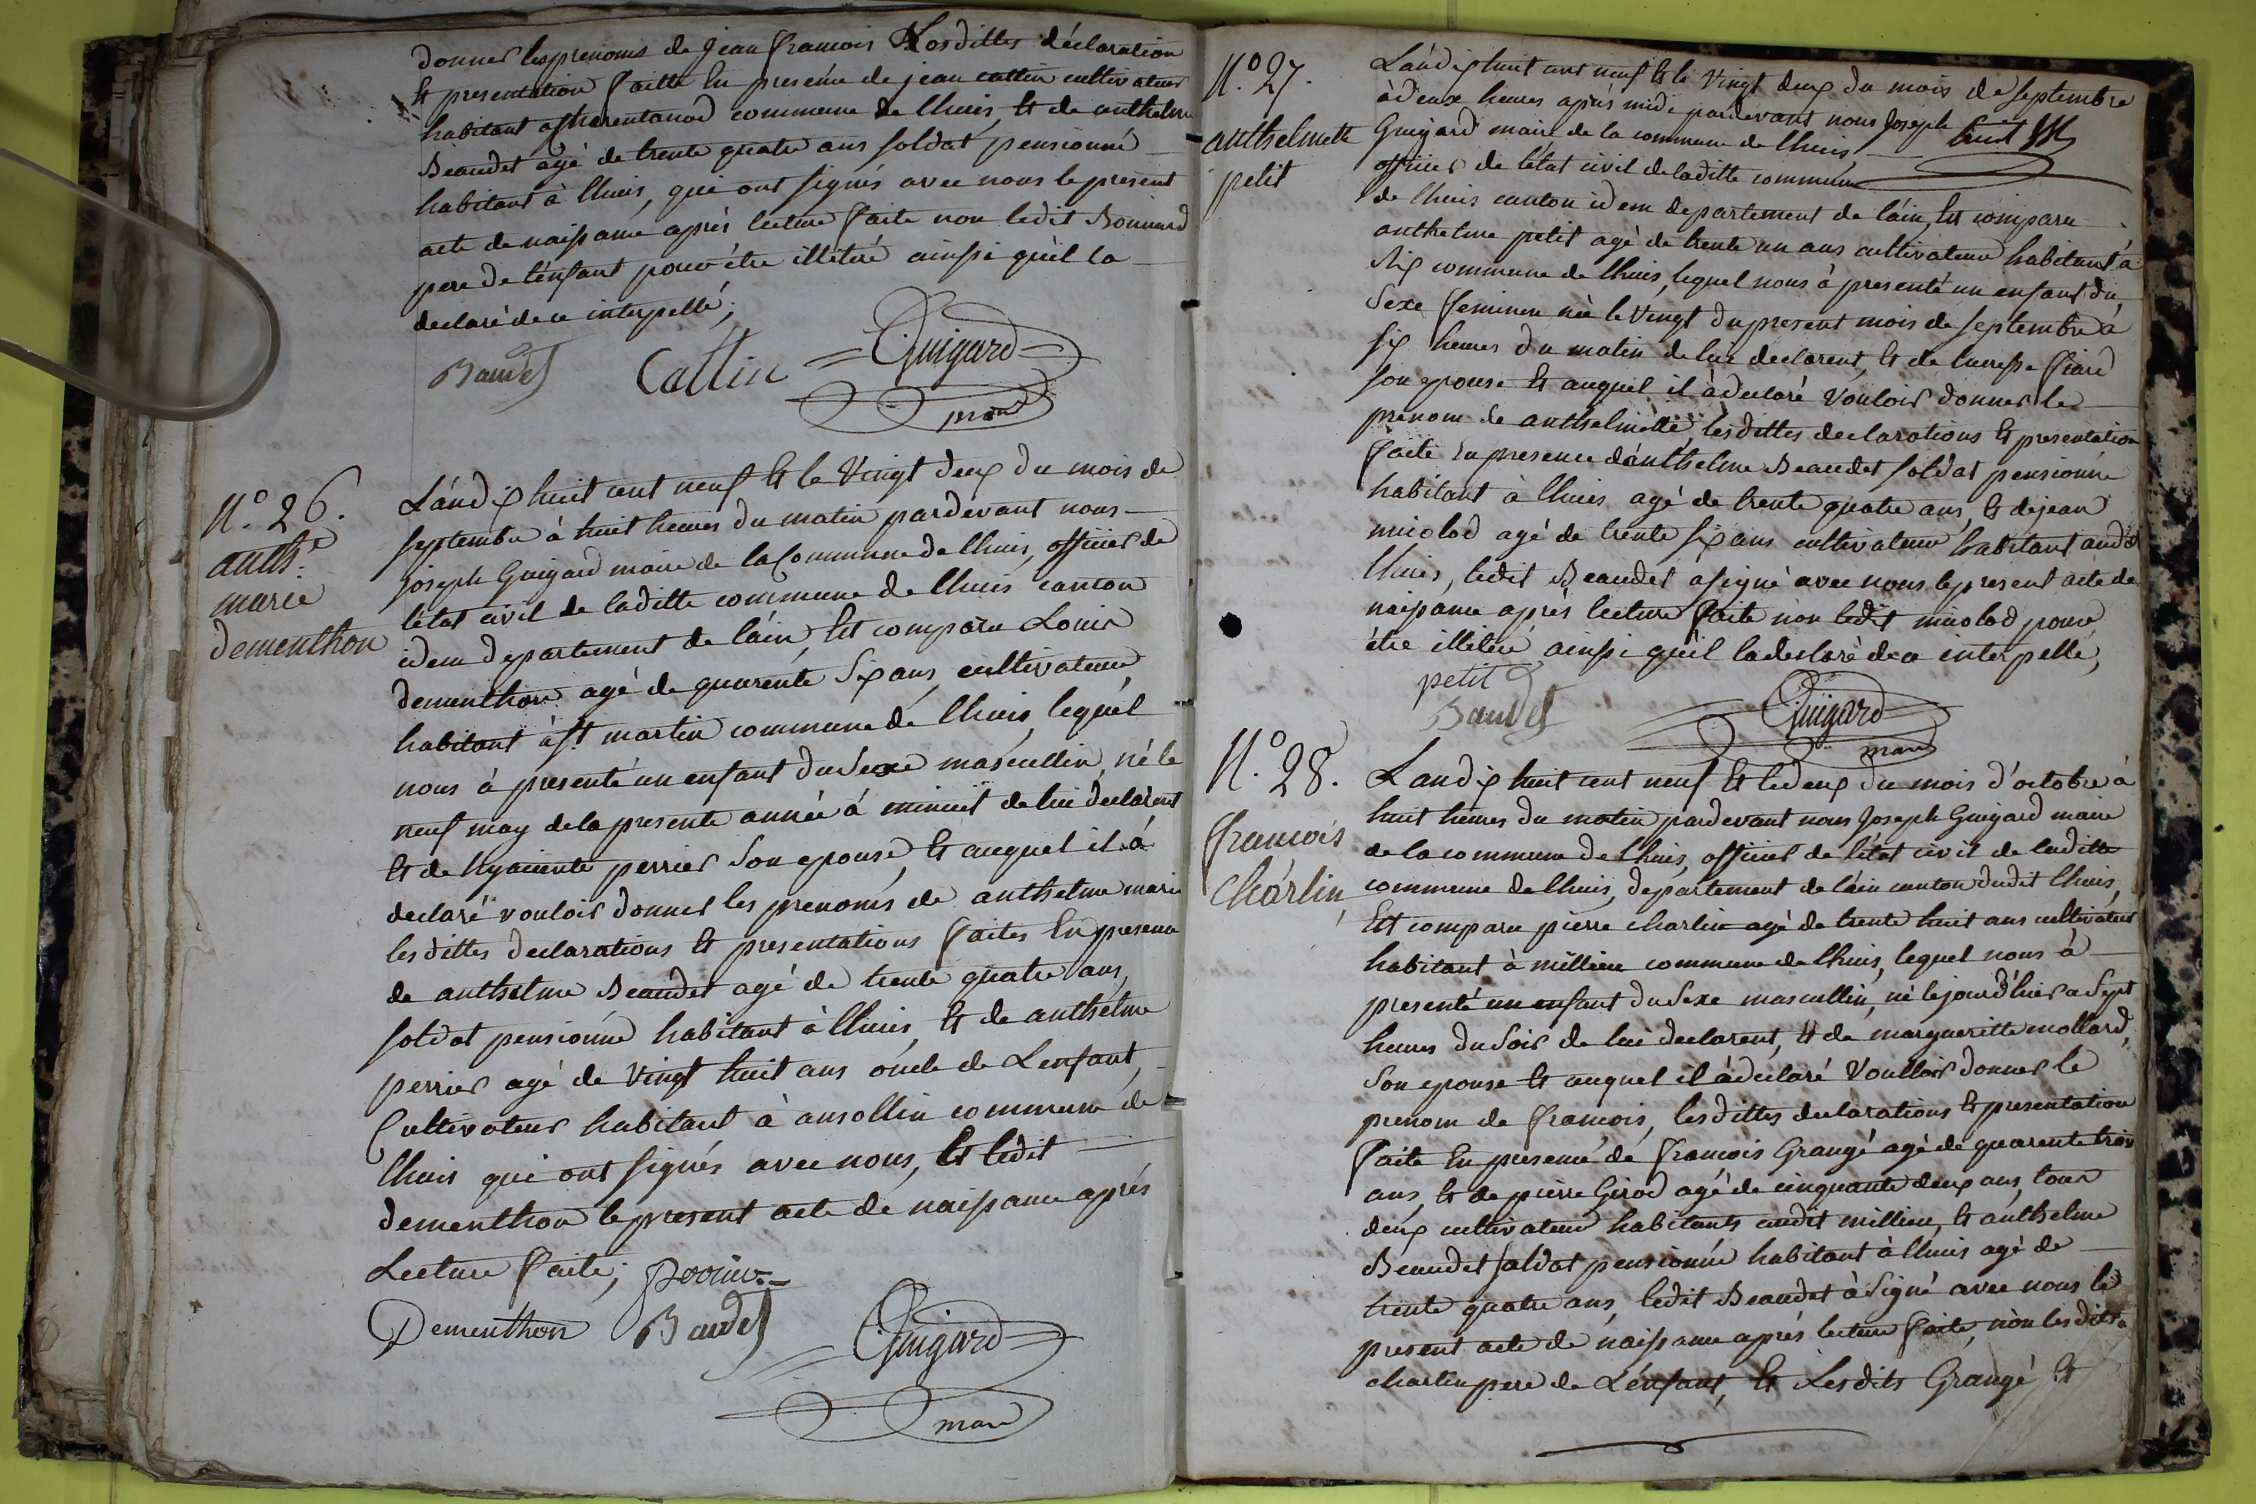 donner les prenoms de jean francois Les dittes déclaration
Et presentation faitte En presence de jean cattin cultivateur
habitant a charentanod commune de lhuis, Et de anthelme
Beaudet agé de trente quatre ans soldat pensionné
habitant à lhuis, qui ont signés avec nous le present
acte de naissance aprés lecture faite non ledit Bonnard
pere de l'enfant pour être illetré ainssi qu'il la
declaré de ce interpellé;
Baudet Cattin Guigard
maire
N.o 26.
anth.e
marie
dementhon
L'an dix huit cent neuf Et le vingt deux du mois de
septembre à huit heures du matin pardevant nous
joseph Guigard maire de la Commune de lhuis, officier de
l'état civil de laditte commune de lhuis canton
idem departement de l'ain, Est comparu Louis
dementhon agé de quarente six ans, cultivateur
habitant à st. martin commune de lhuis, lequel
nous à presenté un enfant du Sexe mascullin, né le
neuf may de la presente année à minuit de lui declarent
Et de hyacinte perrier son epouse, Et auquel il à
declaré vouloir donner les prenoms de anthelme marie
les dittes declarations Et presentations faites En presence
de anthelme Beaudet agé de trente quatre ans,
soldat pensionné habitant à lhuis, Et de anthelme
perrier agé de vingt huit ans oncle de L'enfant,
Cultivateur habitant à ansollin commune de
lhuis qui ont signés avec nous, Et ledit
dementhon le present acte de naissance aprés
Lecture faite; perrier
Dementhon Baudet Guigard
maire
N.o 27.
anthelmette
petit
L'an dix huit cent neuf Et le vingt deux du mois de septembre
à deux heures aprés midi pardevant nous Joseph
Guigard maire de la commune de lhuis,
officier de l'état civil de laditte commune
de lhuis canton idem departement de l'ain, Est comparu
anthelme petit agé de trente un ans cultivateur habitant à
Rix commune de lhuis, lequel nous à presenté un enfant du
Sexe feminin née le vingt du present mois de septembre à
six heures du matin de lui declarent, Et de
son epouse Et auquel il à declaré vouloir donner le
prenom de anthelmette les dittes declarations Et presentation
faite En presence d'anthelme Beaudet soldat pensionné
habitant à lhuis agé de trente quatre ans, Et de jean
miolod agé de trente six ans cultivateur habitant audit
lhuis, ledit Beaudet à signé avec nous le present acte de
naissance aprés lecture faite non ledit miolod pour
être illetré ainssi qu'il la declaré de ce interpellé,
petit
Baudet Guigard
maire
N.o 28.
francois
Charlin,
L'an dix huit cent neuf Et le deux du mois d'octobre à
huit heures du matin pardevant nous Joseph Guigard maire
de la commune de lhuis, officier de l'état civil de laditte
commune de lhuis, departement de l'ain canton dudit lhuis,
Est comparu pierre charlin agé de trente huit ans cultivateur
habitant à millieu commune de lhuis, lequel nous à
presenté un enfant du Sexe mascullin, né le jour d'hier a Sept
heures du Soir de lui declarent, Et de margueritte mollard,
son epouse Et auquel il à declaré vouloir donner le
prenom de francois, les dittes declarations Et presentation
faite En presence de francois Grangé agé de quarente trois
ans, Et de pierre Girod agé de cinquante deux ans, tous
deux cultivateur habitants audit millieu, Et anthelme
Beaudet soldat pensionné habitant à lhuis agé de
trente quatre ans, ledit Beaudet à Signé avec nous le
present acte de naissance aprés lecture faite, non lesdits
charlin pere de L'enfant, Et Lesdits Grangé Et